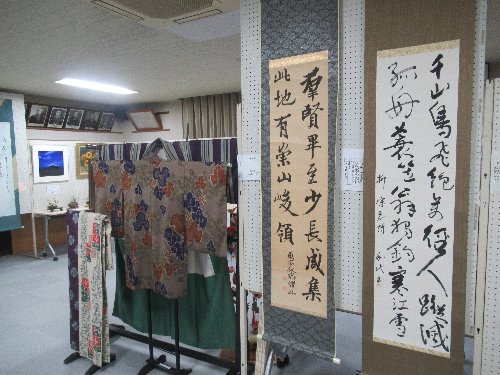 千山鳥飛絶万径人蹤滅
孤舟蓑笠翁独釣寒江雪
柳宗元詩
群賢畢至少長咸集
此地有崇山峻領